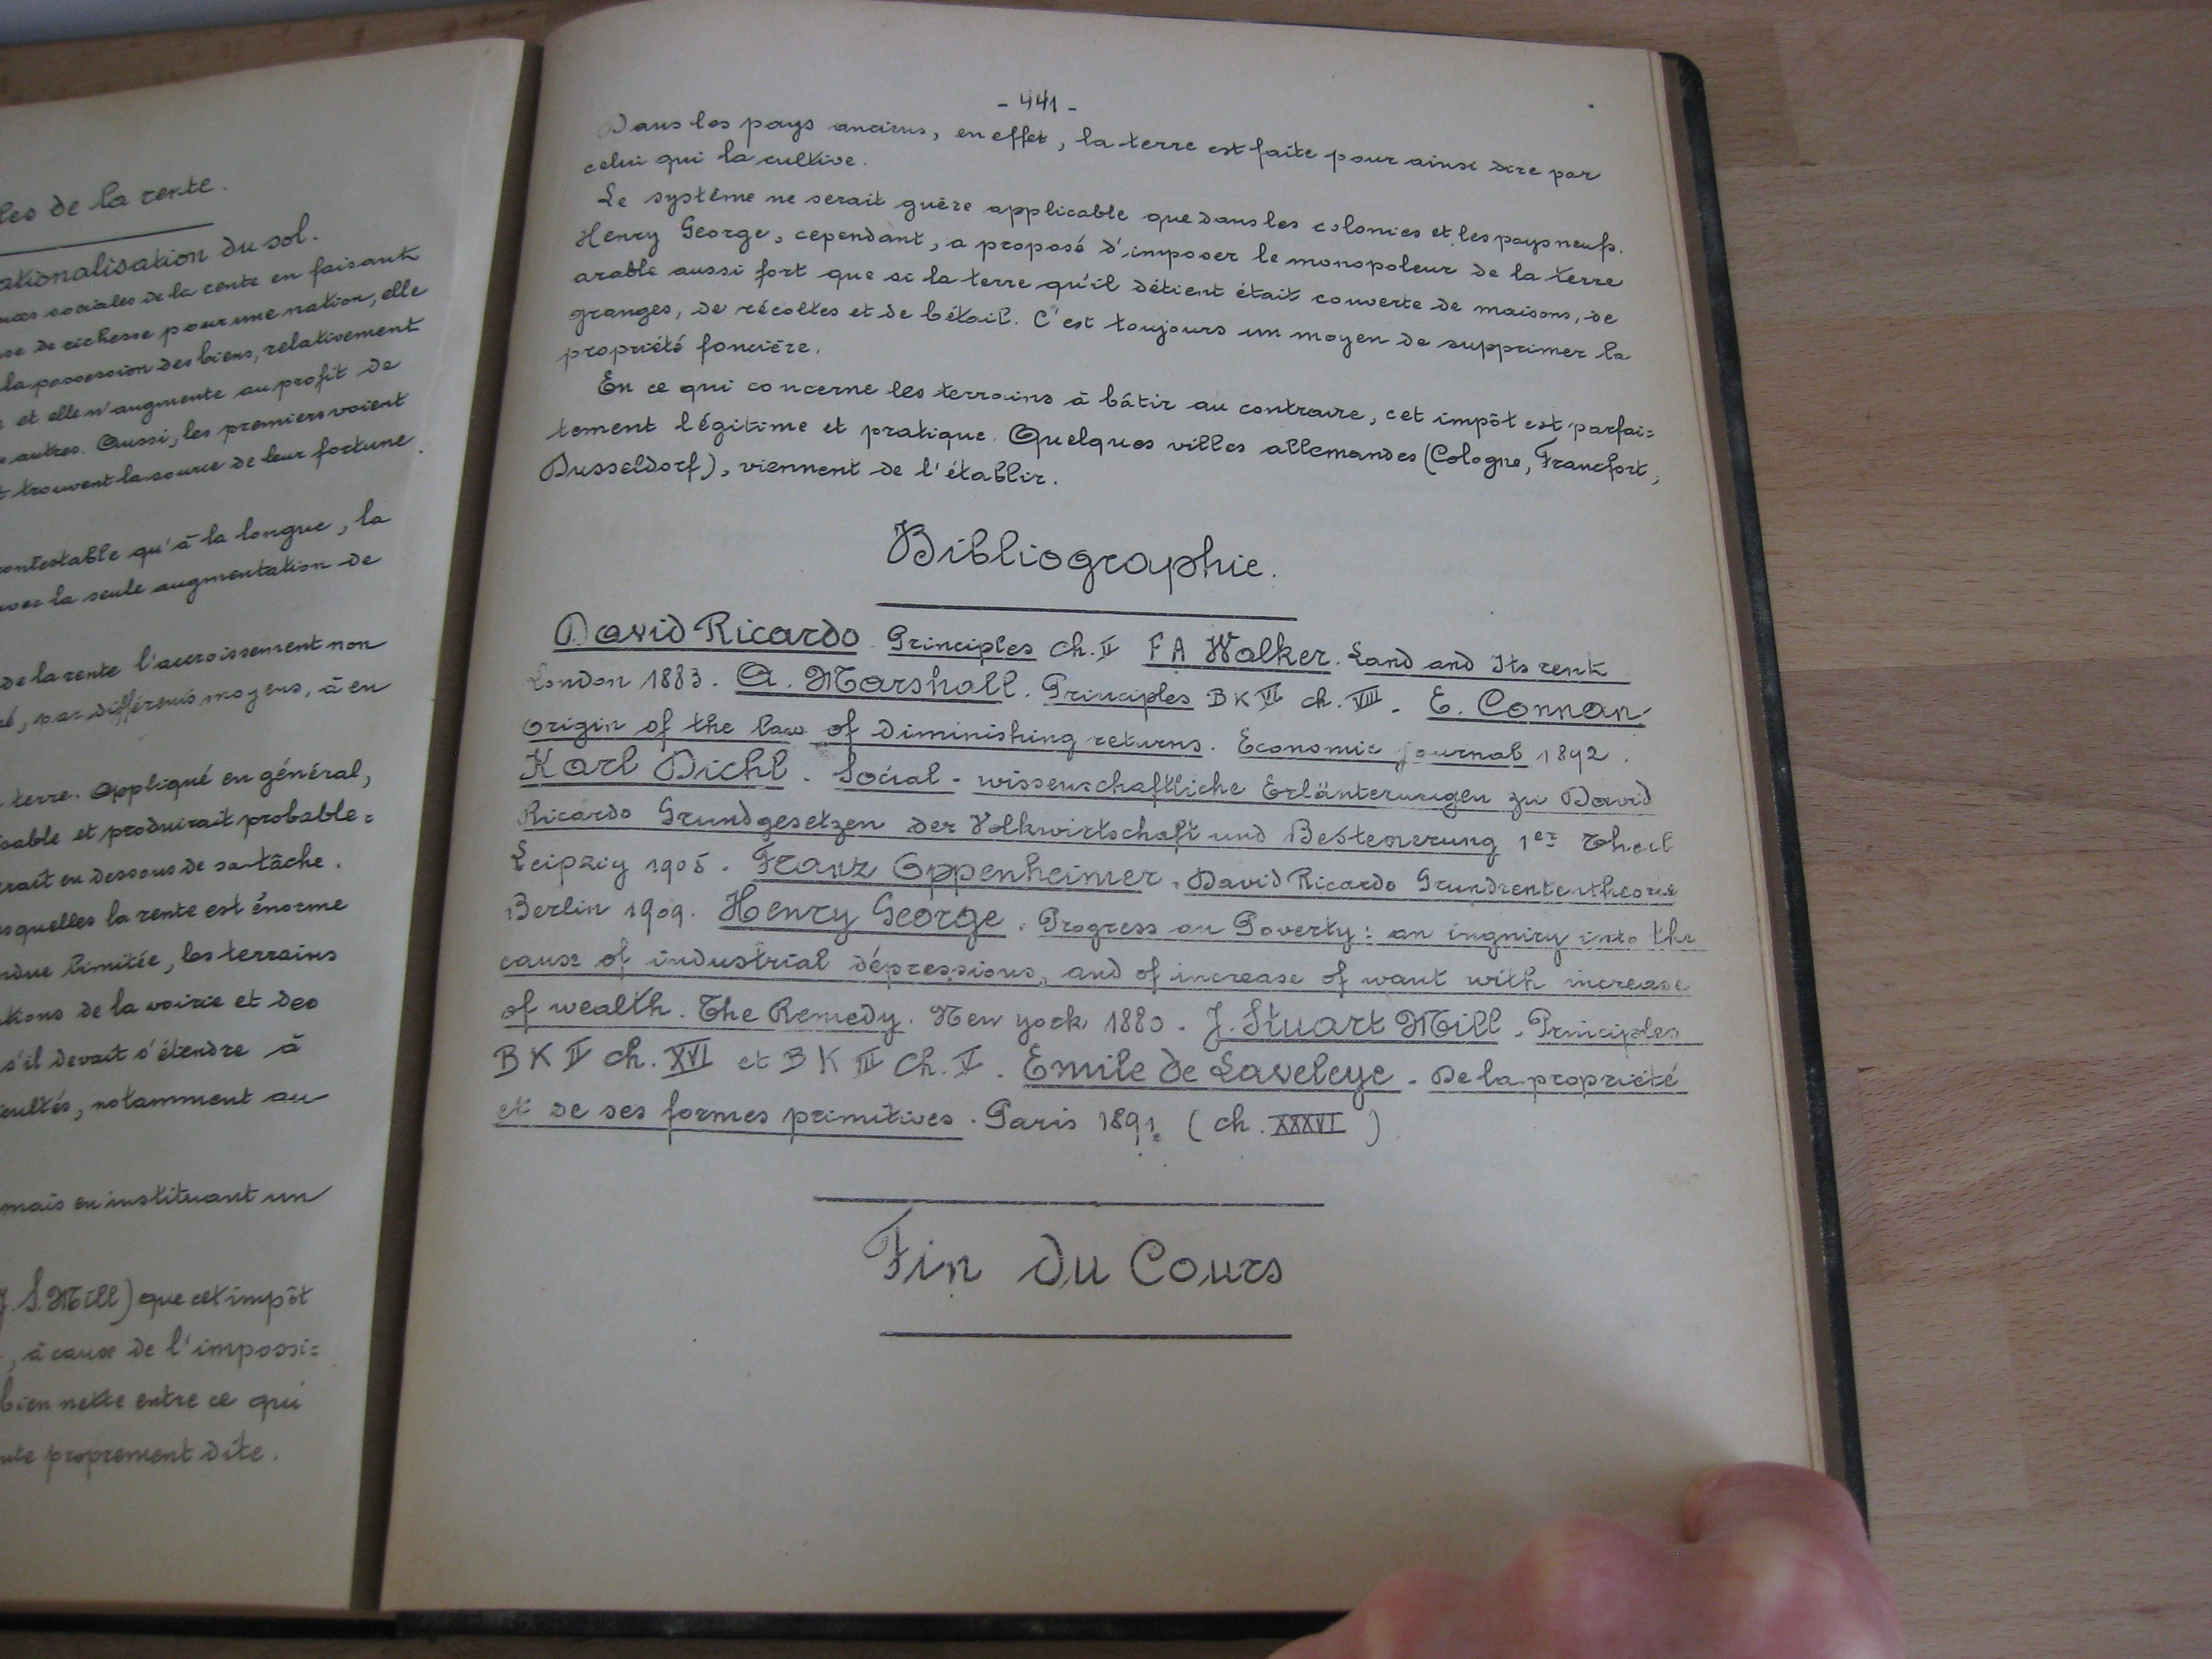 les de la rente.
ationalisation du sol.
sociales de la rente en faisant
de richesse pour une nation, elle
la possession des biens, relativement
et elle n'augmente au profit de
autres. Aussi, les premiers voient
trouvent la source de leur fortune.
contestable qu'à la longue, la
avec la seule augmentation de
de la rente l'accroissement non
par différents moyens, à en
terre. Appliqué en général,
cable et produirait probable=
rait en dessous de sa tâche.
squelles la rente est énorme
ndue limitée, les terrains
tions de la voirie et des
s'il devait s'étendre à
icultés, notamment au
mais en instituant un
J. S. Mill) que cet impôt
, à cause de l'impossi=
bien nette entre ce qui
nte proprement dite.
- 441 -
Dans les pays anciens, en effet, la terre est faite pour ainsi dire par
celui qui la cultive.
Le système ne serait guère applicable que dans les colonies et les pays neufs.
Henry George, cependant, a proposé d'imposer le monopoleur de la terre
arable aussi fort que si la terre qu'il détient était couverte de maisons, de
granges, de récoltes et de bétail. C'est toujours un moyen de supprimer la
propriété foncière.
En ce qui concerne les terrains à bâtir au contraire, cet impôt est parfai=
tement légitime et pratique. Quelques villes allemandes (Cologne, Francfort,
Dusseldorf), viennent de l'établir.
Bibliographie.
David Ricardo. Principles ch. II F A Walker. Land and Its rent
London 1883. A. Marshall. Principles BK VI ch. VIII. E. Connan
origin of the law of diminishing returns. Economic journal 1892.
Karl Dichl. Social-wissenschaftliche Erlänterungen zu David
Ricardo Grundgesetzen der Volkwirtschaft und Besteuerung 1er Theil
Leipzig 1905. Franz Oppenheimer. David Ricardo Grundrententheorie
Berlin 1909. Henry George. Progress on Poverty: an ingniry into the
cause of industrial dépressions, and of increase of want with increase
of wealth. The Remedy. New york 1880. J. Stuart Mill. Principles
BK II ch. XVI et BK III ch. V. Emile de Laveleye. De la propriété
et de ses formes primitives. Paris 1891. (ch. XXXVI)
Fin du Cours